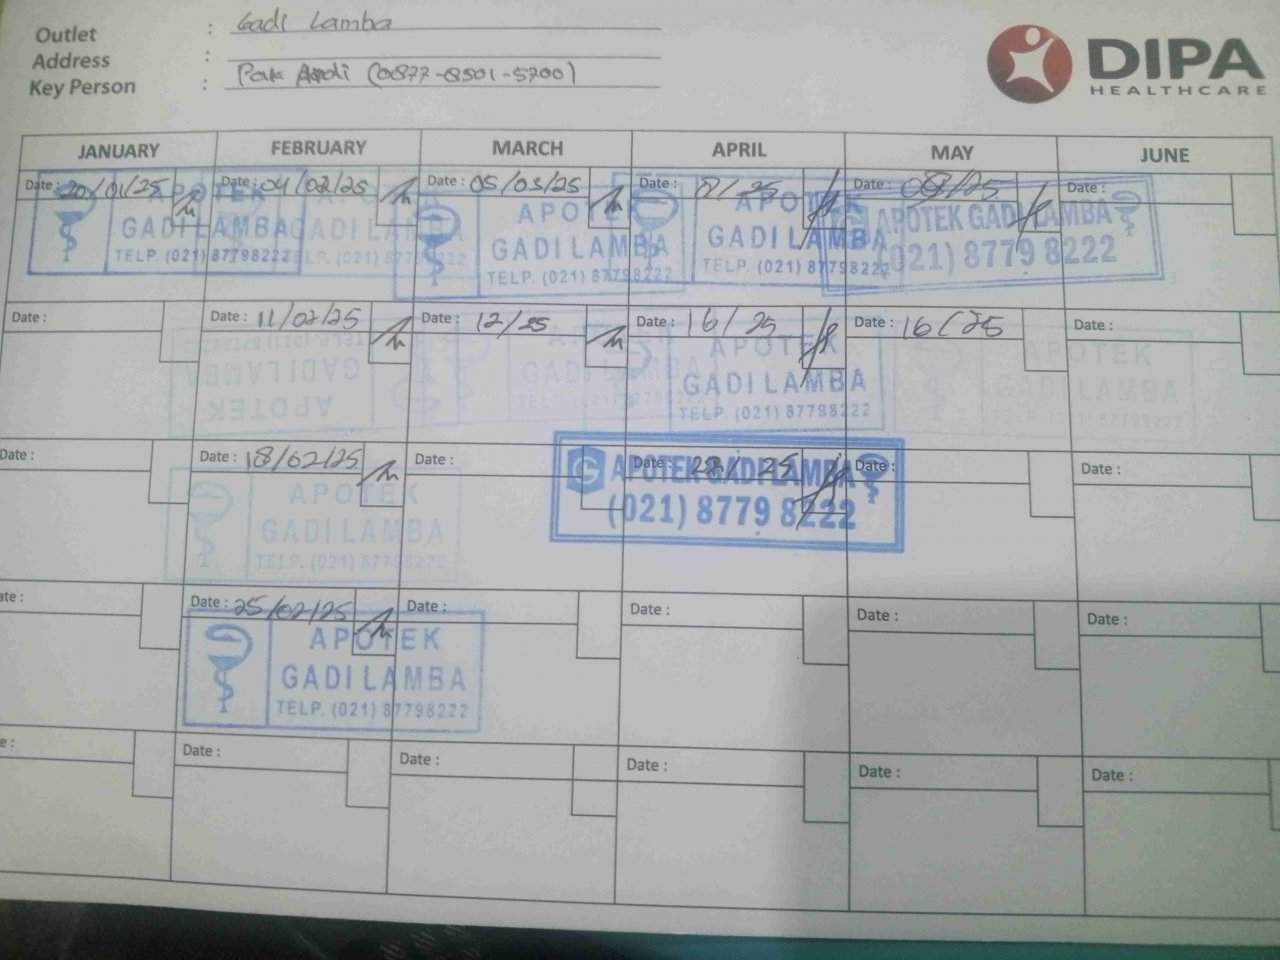 Outlet : Gadi Lamba
Address :
Key Person : Pak Andi (0877-8501-5700)
DIPA
HEALTHCARE
JANUARY FEBRUARY MARCH APRIL MAY JUNE
Date : 20/01/25 Date : 04/02/25 Date : 05/03/25 Date : 8/25 Date : Date :
APOTEK
GADI LAMBA
TELP. (021) 87798222
APOTEK
GADI LAMBA
TELP. (021) 87798222
APOTEK
GADI LAMBA
TELP. (021) 87798222
APOTEK
GADI LAMBA
TELP. (021) 87798222
APOTEK GADI LAMBA
(021) 8779 8222
Date : Date : 11/02/25 Date : 12/25 Date : 16/25 Date : 16/25 Date :
APOTEK
GADI LAMBA
APOTEK
GADI LAMBA
TELP. (021) 87798222
APOTEK
GADI LAMBA
TELP. (021) 87798222
Date : Date : 18/02/25 Date : Date : Date : Date :
APOTEK
GADI LAMBA
TELP. (021) 87798222
APOTEK GADI LAMBA
(021) 8779 8222
Date : Date : 25/02/25 Date : Date : Date : Date :
APOTEK
GADI LAMBA
TELP. (021) 87798222
Date : Date : Date : Date : Date :